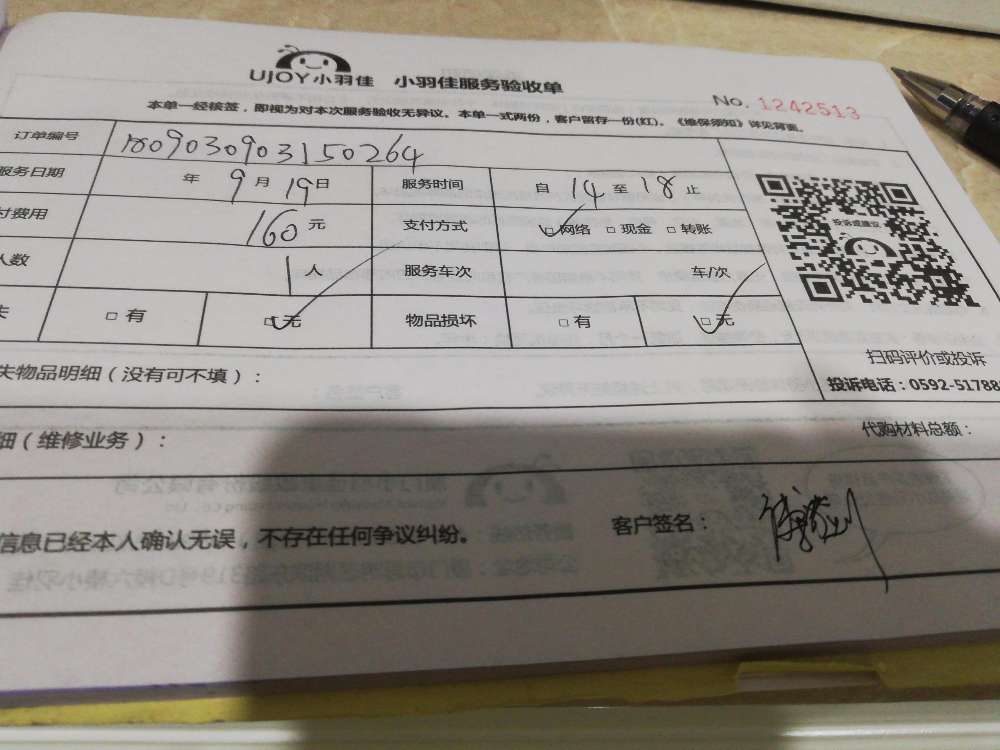 UJOY小羽佳 小羽佳服务验收单
No. 1242513
本单一经核签，即视为对本次服务验收无异议。本单一式两份，客户留存一份(红)。《维保须知》详见背面。
订单编号 1809030903150264
服务日期 年 9 月 19 日 服务时间 自 14 至 18 止
付费用 160 元 支付方式 □网络 □现金 □转账
人数 1 人 服务车次 车/次
失 □有 □无 物品损坏 □有 □无
投诉或建议
扫码评价或投诉
投诉电话：0592-51788
失物品明细（没有可不填）：
细（维修业务）： 代购材料总额：
信息已经本人确认无误，不存在任何争议纠纷。 客户签名：